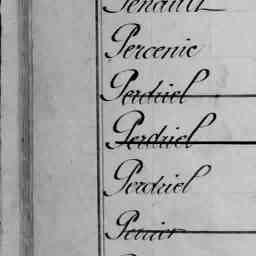 Penault
Percenie
Perdriel
Perdriel
Perdriel
Perrier